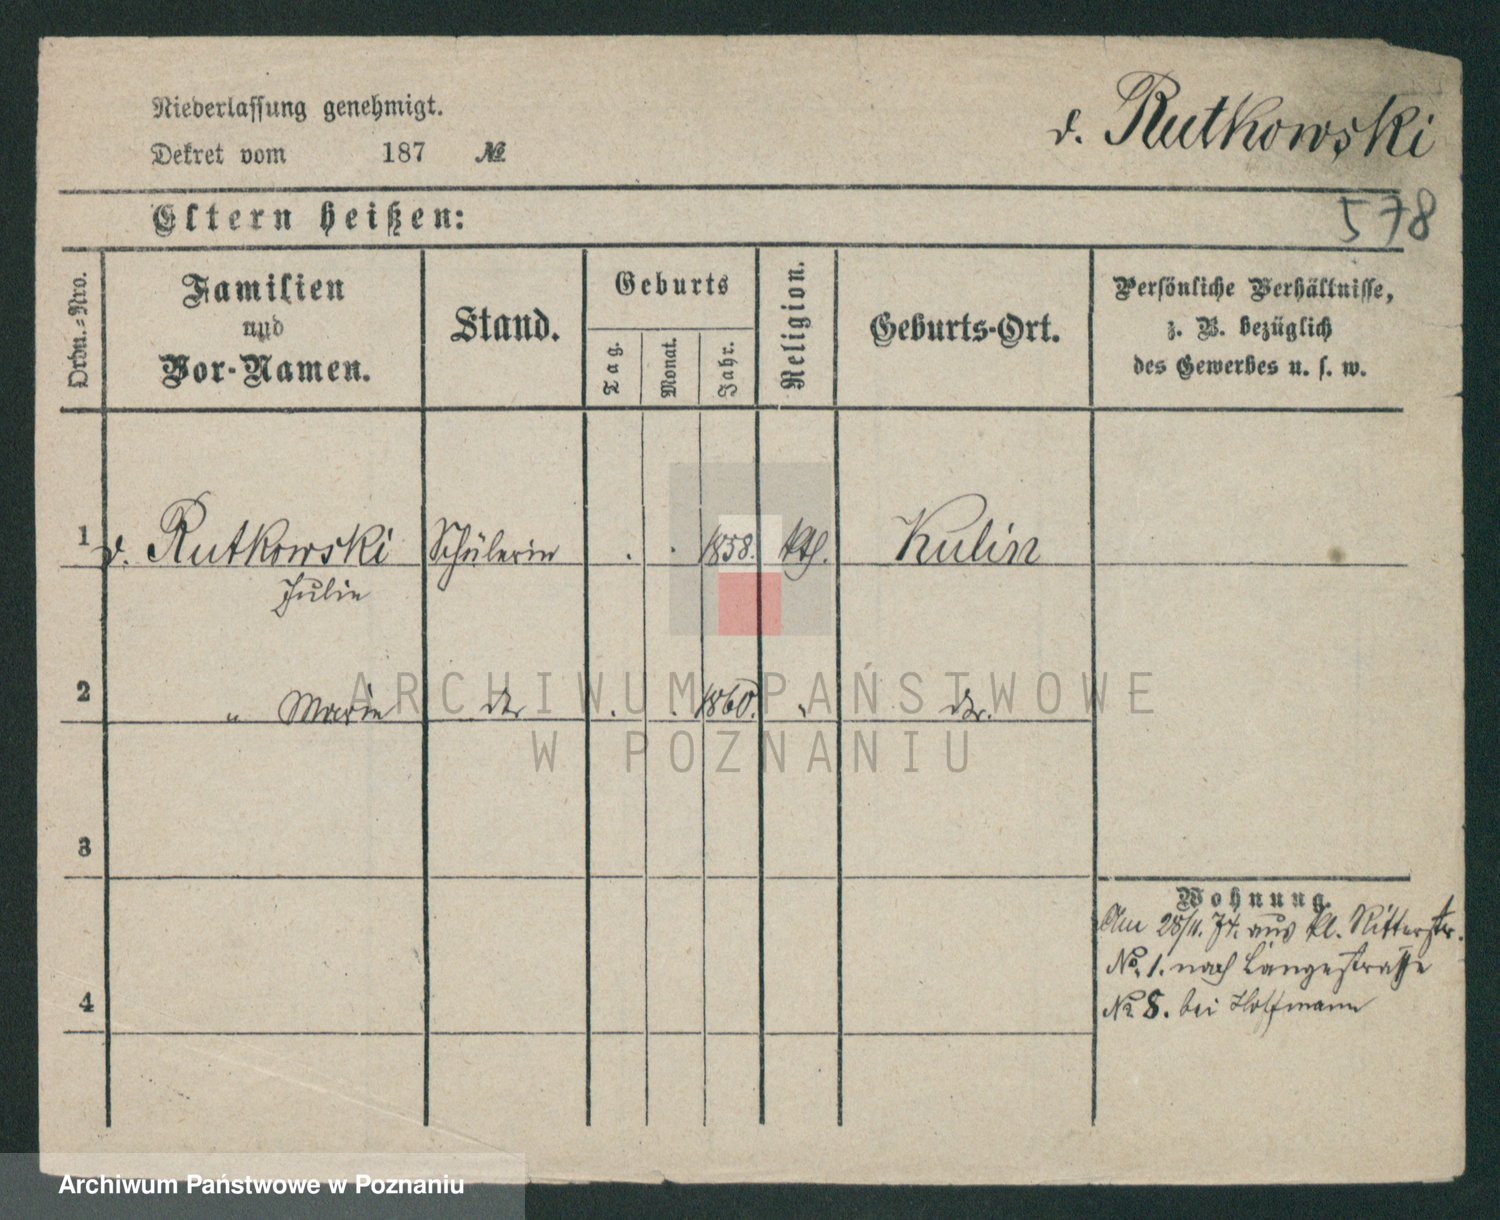 Niederlassung genehmigt.
Dekret vom 187 №
v. Rutkowski
578
Eltern heißen:
Ordn.-Nro.
Familien
und
Vor-Namen.
Stand.
Geburts
Tag.
Monat.
Jahr.
Religion.
Geburts-Ort.
Persönliche Verhältnisse,
z. B. bezüglich
des Gewerbes u. s. w.
1 v. Rutkowski Schülerin . . 1858. kth. Kulin
Julie
2 " Marie do . . 1860. " do.
3
4
Wohnung.
Am 28/11. 74. aus kl. Ritterstr.
No. 1. nach Langestraße
No 8. bei Hoffmann
ARCHIWUM PAŃSTWOWE
W POZNANIU
Archiwum Państwowe w Poznaniu